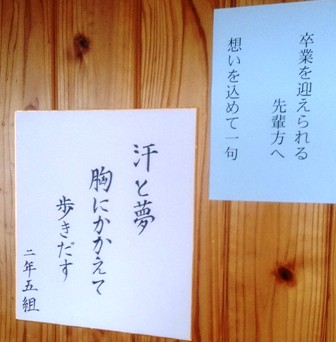 卒業を迎えられる
先輩方へ
想いを込めて一句
汗と夢
胸にかかえて
歩きだす
二年五組